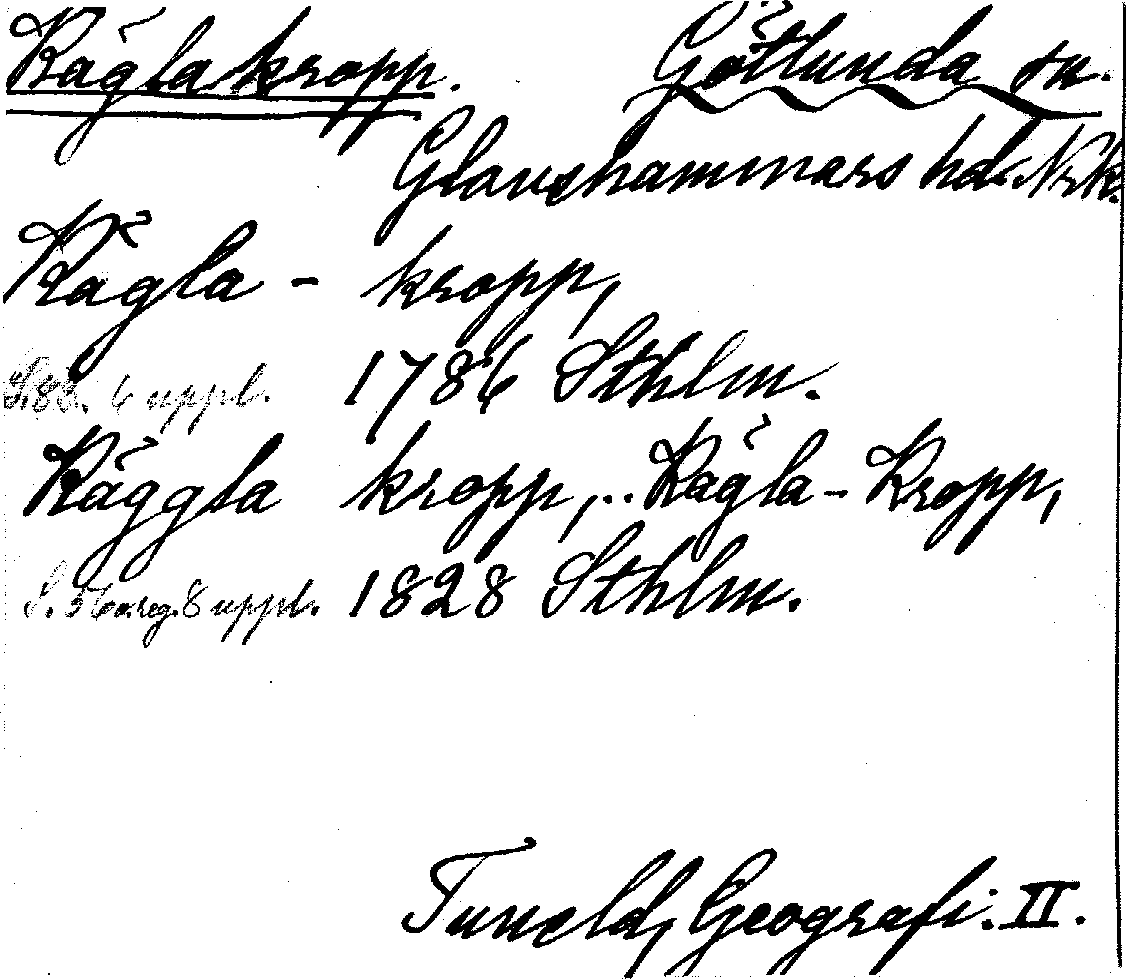 Kägla kropp. Götlunda sn.
Glanshammars hd. Nrk.
Kägla - kropp,
S. 88. 6 uppl. 1786 Sthlm.
Käggla kropp,.. Kägla - Kropp,
S. 56 o. reg. 8 uppl. 1828 Sthlm.
Tuneld, Geografi. II.